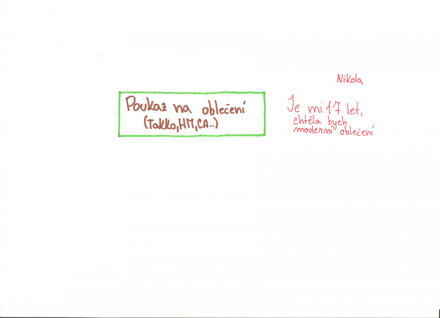 Nikola
Poukaz na oblečení
(Takko,HM,CA..)
Je mi 17 let,
chtěla bych
moderní oblečení